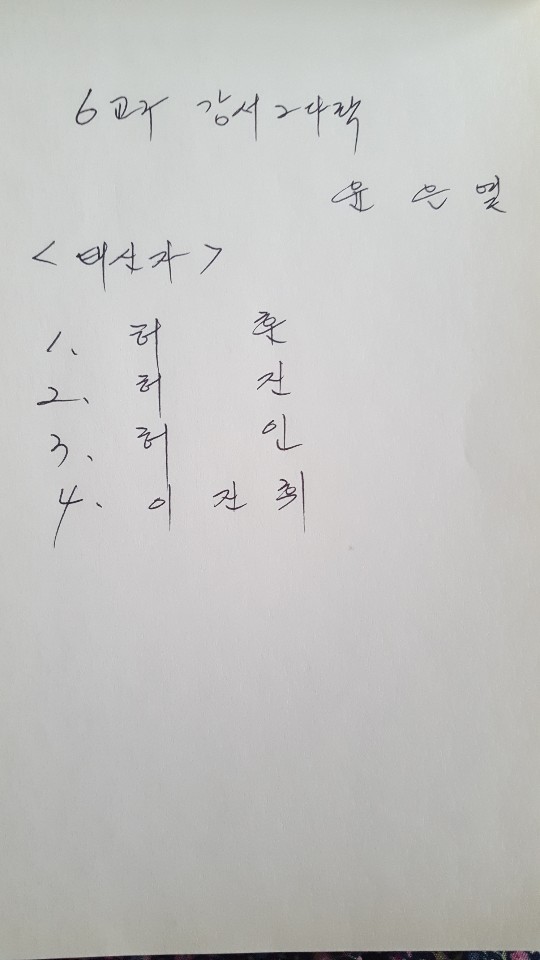 6교구 강서2다락
윤 은 열
<태신자>
1. 허 훈
2. 허 진
3. 허 인
4. 이 진 희